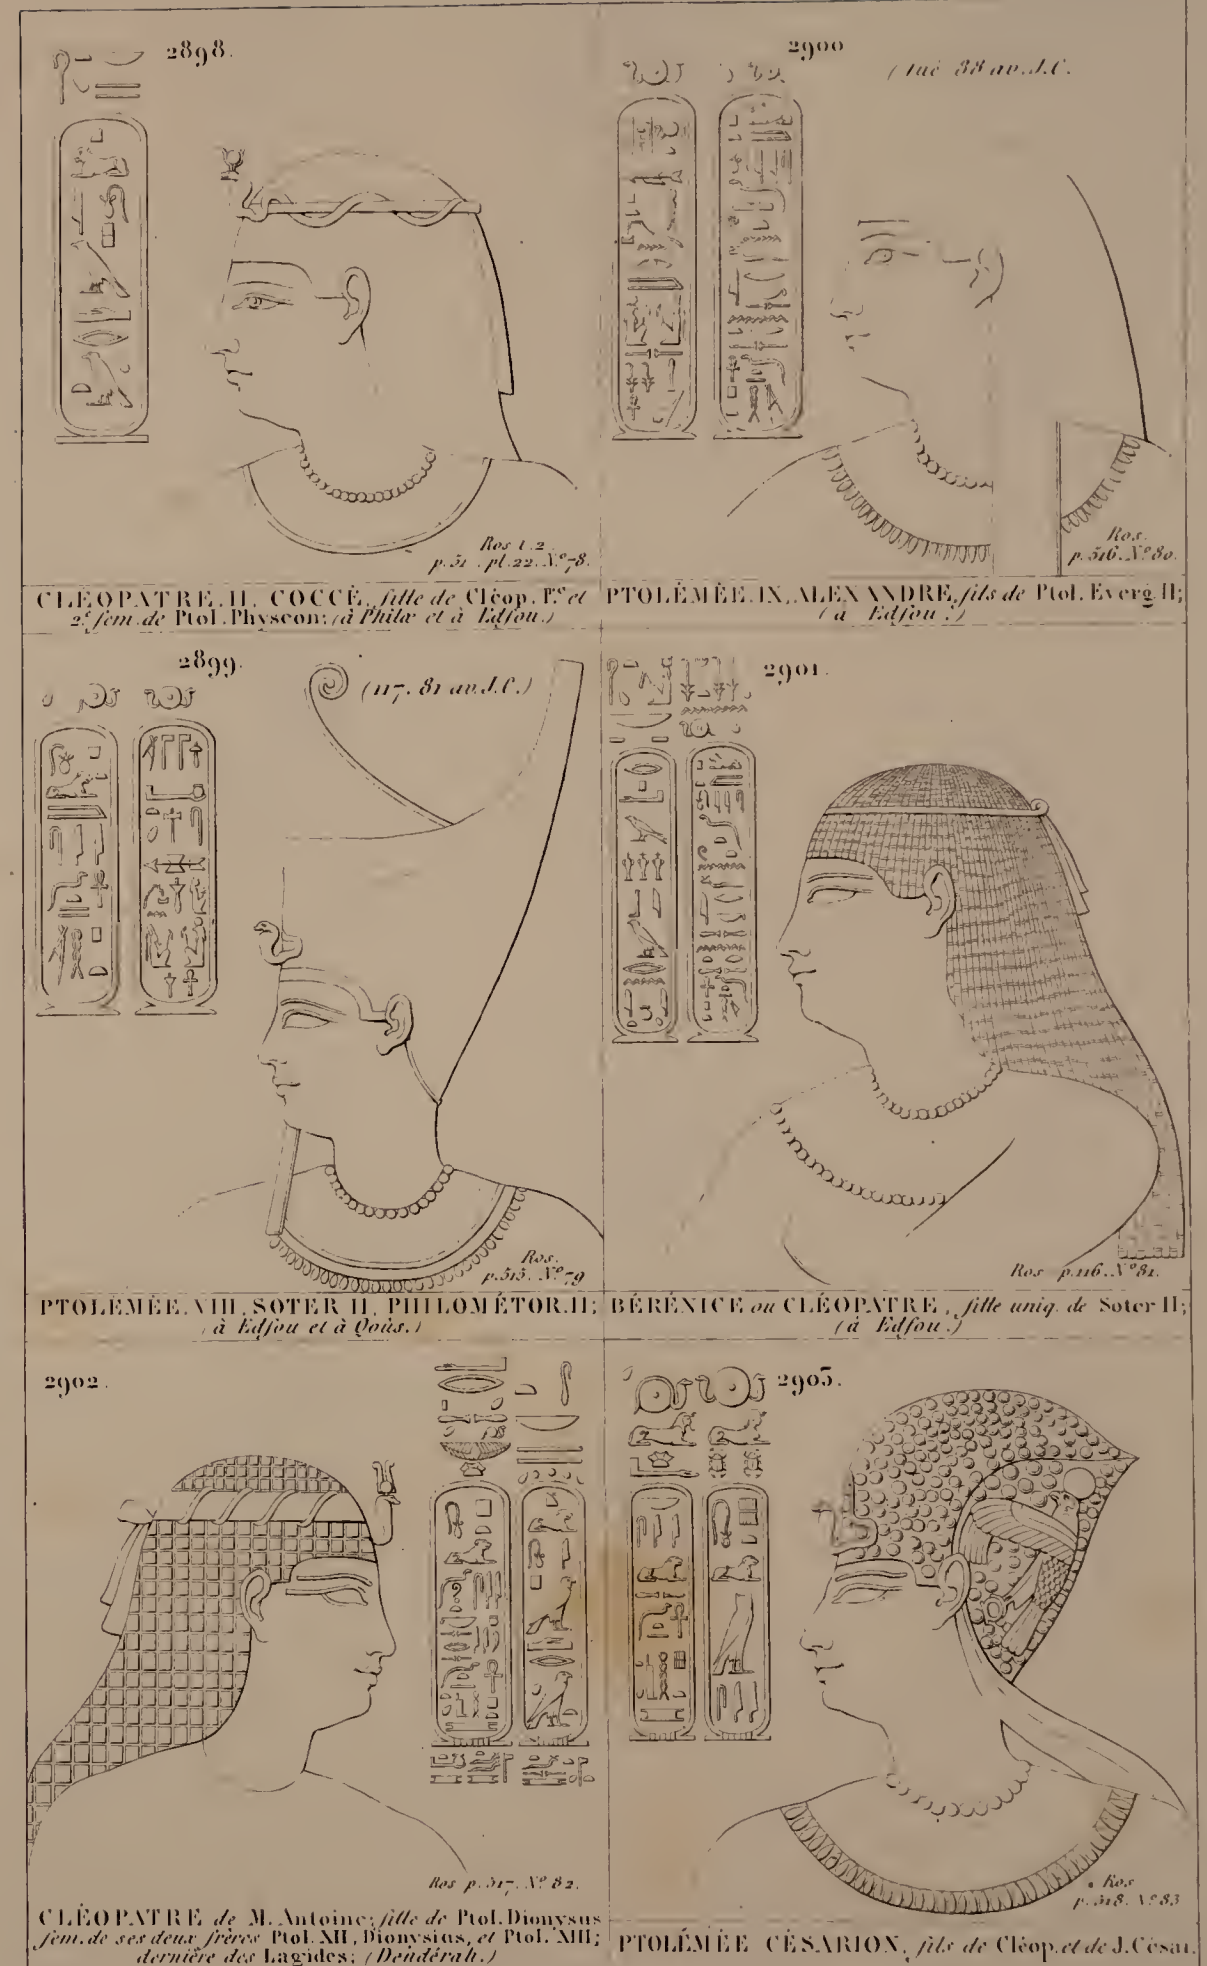 2898.
Ros t.2.
p.51. pl.22. N.º 78.
CLÉOPATRE.II, COCCÉ, fille de Cléop. I.re et
2.e fem. de Ptol. Physcon; (à Philæ et à Edfou.)
2900
(tué 88 av.J.C.
Ros.
p.516. N.º 80.
PTOLÉMÉE.IX, ALEXANDRE, fils de Ptol. Everg. II;
(à Edfou.)
2899.
(117. 81 av.J.C.)
Ros.
p.515. N.º 79
PTOLÉMÉE.VIII, SOTER II, PHILOMÉTOR.II;
(à Edfou et à Qoûs.)
2901.
Ros p.116. N.º 81.
BÉRÉNICE ou CLÉOPATRE, fille uniq. de Soter II;
(à Edfou.)
2902.
Ros p.517. N.º 82.
CLÉOPATRE de M. Antoine; fille de Ptol. Dionysus
fem. de ses deux frères Ptol. XII, Dionysius, et Ptol. XIII;
dernière des Lagides; (Dendérah.)
2903.
Ros
p.518. N.º 83
PTOLÉMÉE CÉSARION, fils de Cléop. et de J. César.